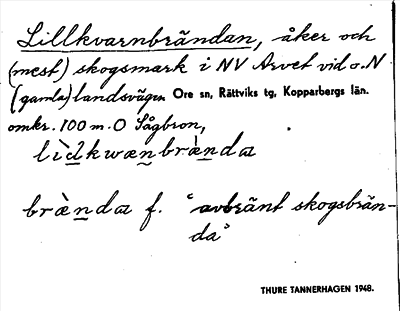 Lillkvarnbrändan, åker och
(mest) skogsmark i NV Arvet vid o. N
(gamla) landsvägen Ore sn, Rättviks tg, Kopparbergs län.
omkr. 100 m. O Sågbron,
lìdkwænbrænda
bræ̀nda f. "avbränt skogsbrän-
da"
THURE TANNERHAGEN 1948.